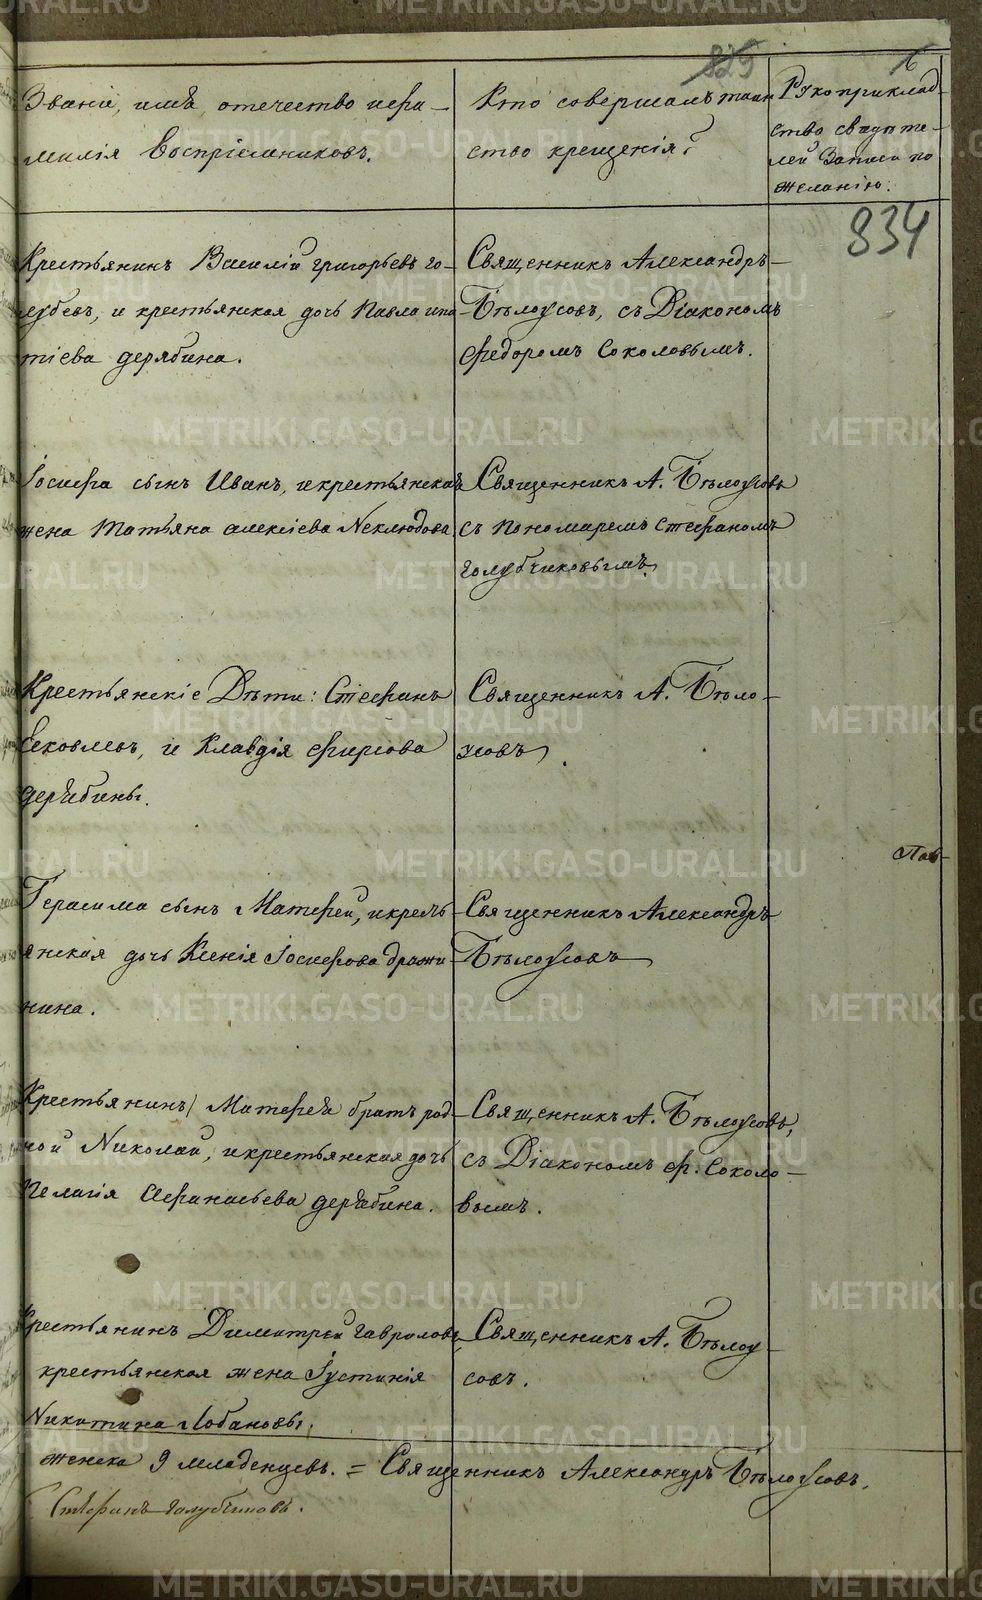 829
6
Званіе, имя, отечество и фа-
милія Воспріемниковъ.
Кто совершалъ таин
ство крещенія?
Рукоприклад-
ство свидѣте-
лей Записи по
желанію.
834
Крестьянинъ Василій григорьевъ го-
лубевъ, и крестьянская дочь Павла ипа
тіева дерябина.
Священникъ Александръ
Бѣлоусовъ, съ Діакономъ
Федоромъ Соколовымъ.
Іосифа сынъ Иванъ, и крестьянская
жена Татьяна алексіева Неклюдова.
Священникъ А. Бѣлоусовъ
съ Пономаремъ Стефаномъ
голубчиковымъ.
Крестьянскіе Дѣти: Стефанъ
Іаковлевъ, и Клавдія Фирсова
дерябины.
Священникъ А. Бѣло-
усовъ.
Пав-
Герасима сынъ Матфей, и кресть
янская дочь Ксенія Іосифова дражи
нина.
Священникъ Александръ
Бѣлоусовъ
Крестьянинъ Матфея братъ род-
ной Николай, и крестьянская дочь
Пелагія Афанасьева дерябина.
Священникъ А. Бѣлоусовъ,
съ Діакономъ Ф. Соколо-
вымъ.
Крестьянинъ Димитрій гавриловъ,
крестьянская жена Іустинія
Никитина Лобановы.
Священникъ А. Бѣлоу
совъ.
женска 9 младенцевъ. = Священникъ Александръ Бѣлоусовъ.
Стефанъ голубчиковъ.
METRIKI.GASO-URAL.RU